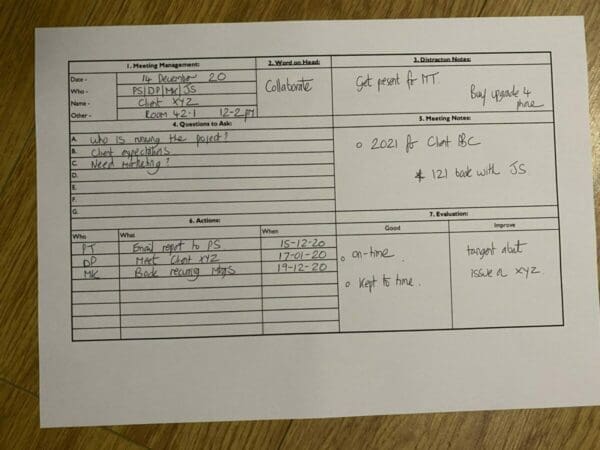 1. Meeting Management:
Date - 14 December 20
Who - PS|DP|MK|JS
Name - Client XYZ
Other - Room 42.1 12-2pm
2. Word on Head:
Collaborate
3. Distracton Notes:
Get present for MT.
Buy upgrade 4
phone
4. Questions to Ask:
A. Who is running the project?
B. Client expectations
C. Need marketing?
D.
E.
F.
G.
5. Meeting Notes:
o 2021 for Client ABC
* 121 book with JS
6. Actions:
Who What When
PT Email report to PS 15-12-20
DP Meet Client XYZ 17-01-20
MK Book recurring Mtgs 19-12-20
7. Evaluation:
Good Improve
o on-time.
o Kept to time.
tangent about
issue a XYZ.